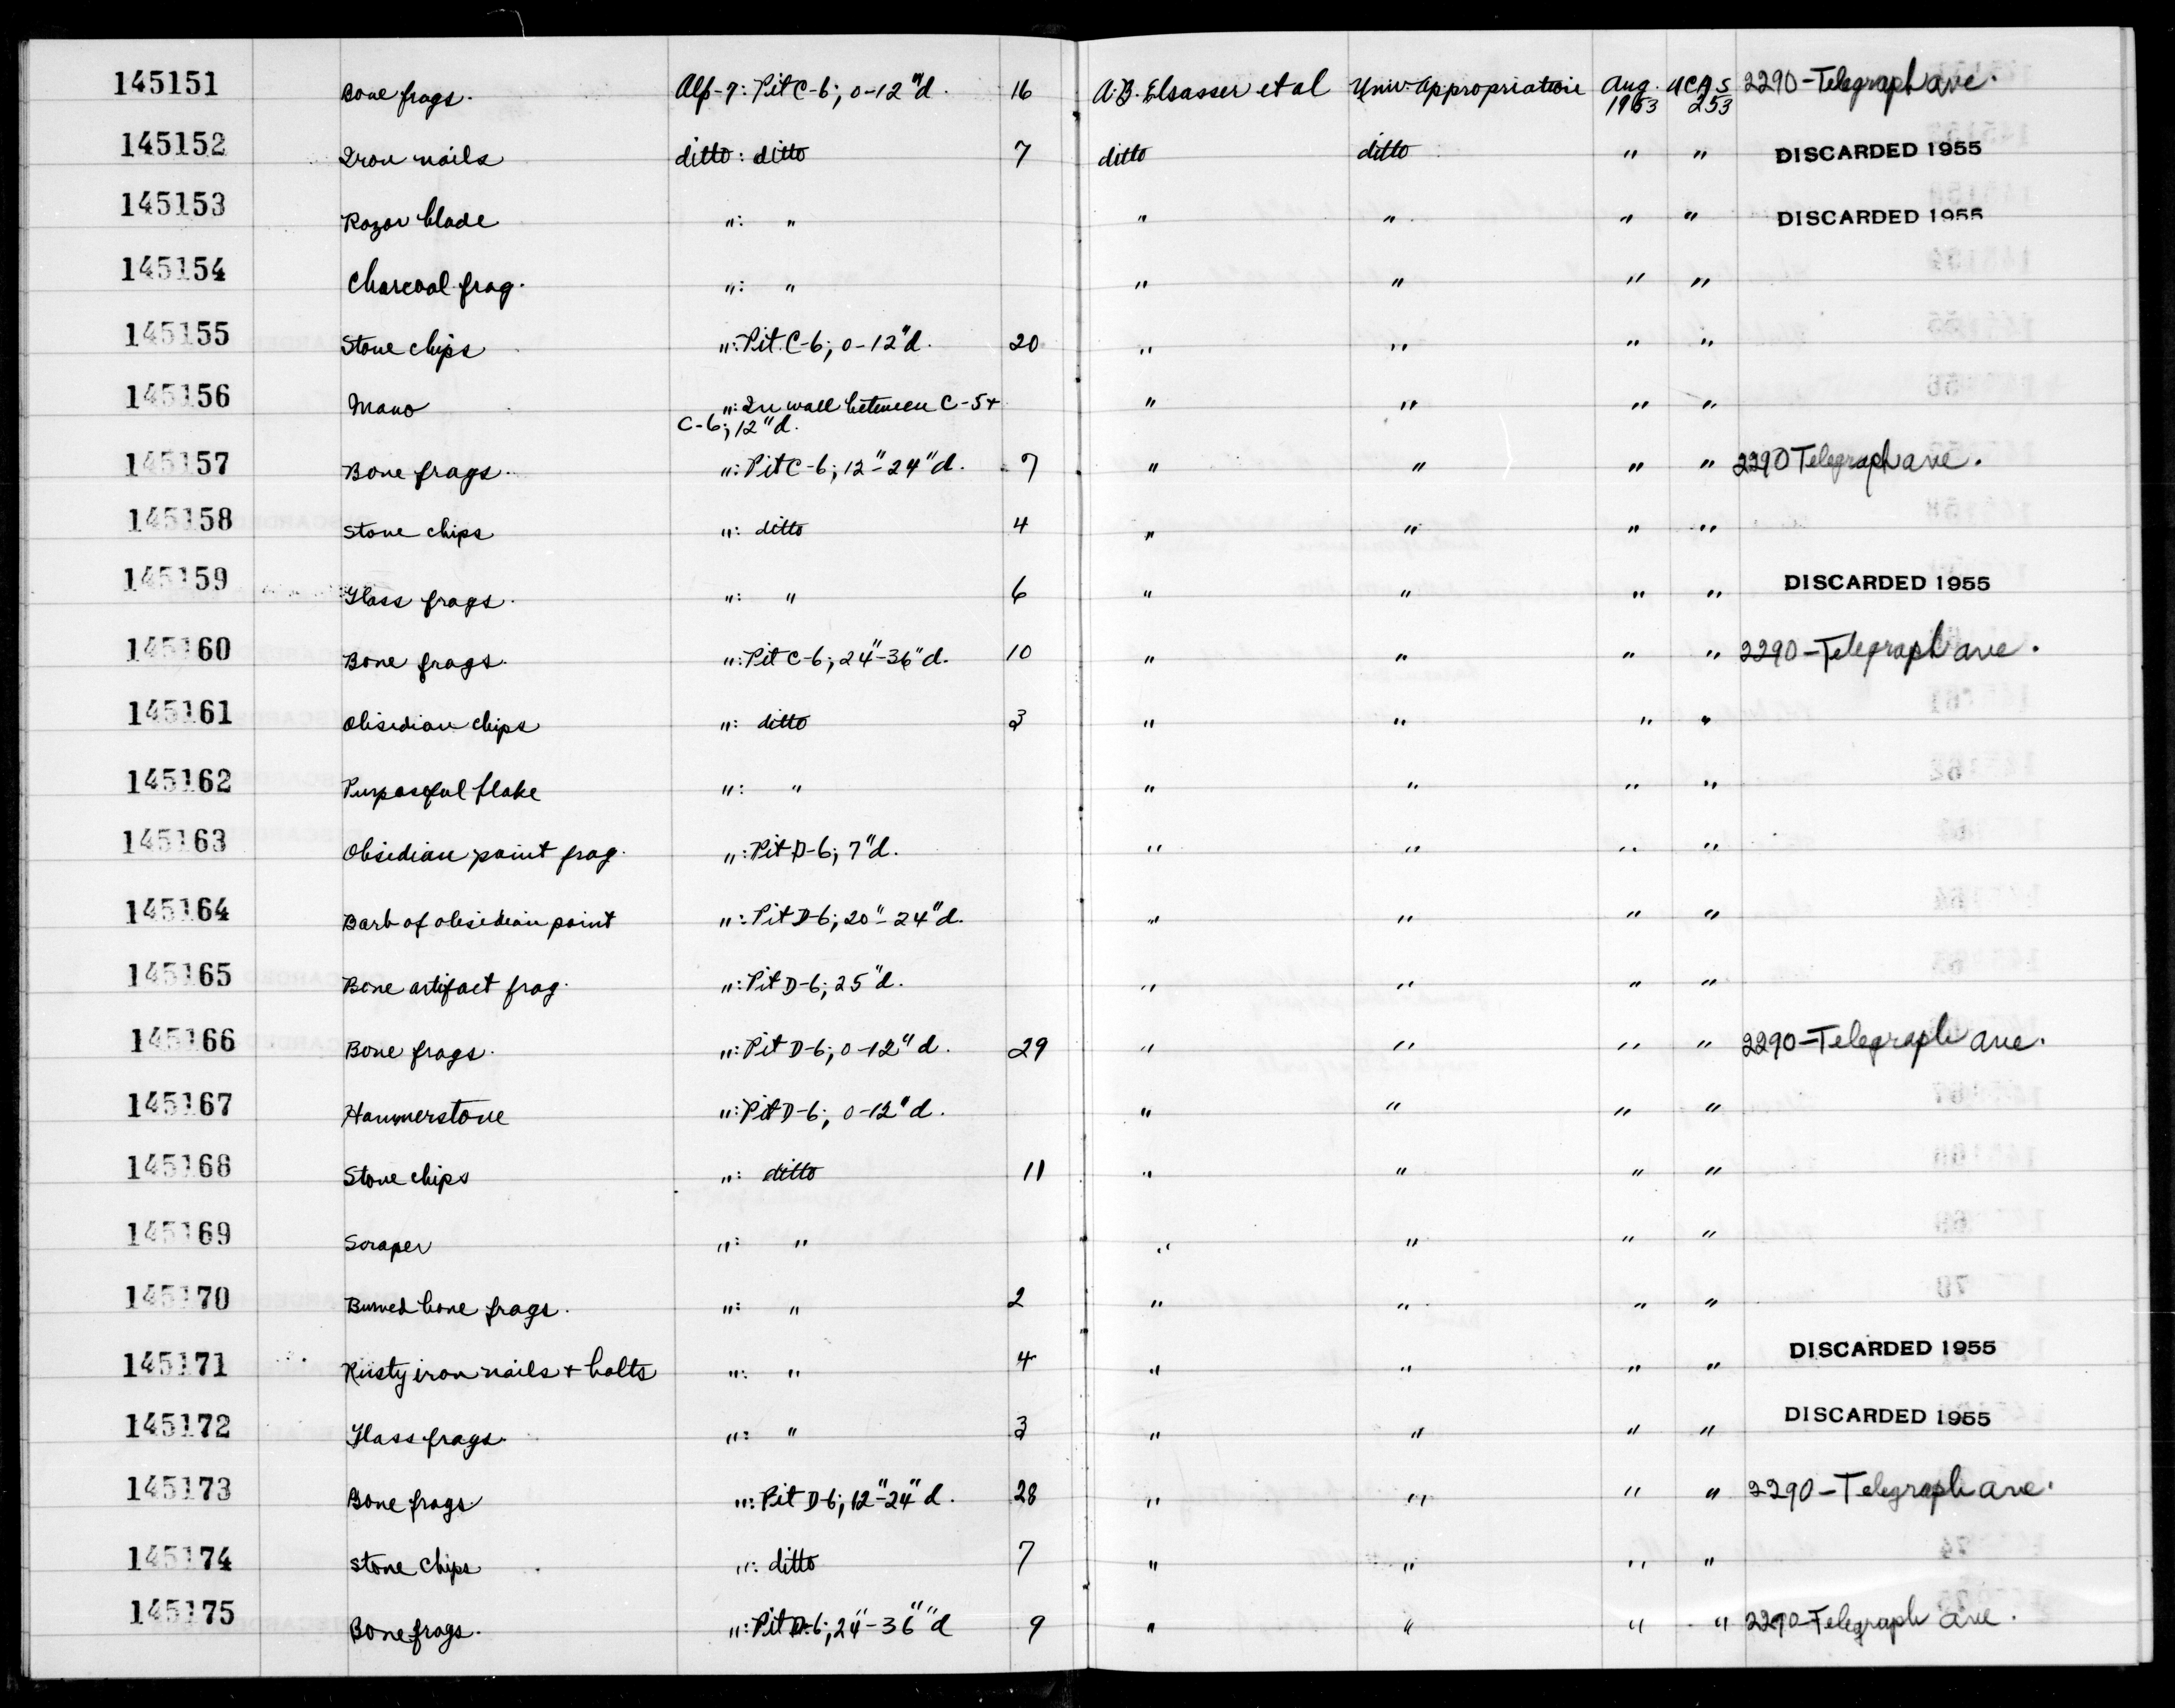 145151 Bone frags. Alp-9: Pit C-6; 0-12"d. 16 A.B. Elsasser et al Univ. Appropriation Aug. 1953 UCAS 253 2290-Telegraph ave.
145152 Iron nails ditto: ditto 7 ditto ditto " " DISCARDED 1955
145153 Razor blade ": " " " " " DISCARDED 1955
145154 Charcoal frag. ": " " " " "
145155 Stone chips ": Pit C-6; 0-12"d. 20 " " " "
145156 Mano ": In wall between C-5 +
C-6; 12"d. " " " "
145157 Bone frags. ": Pit C-6; 12"-24"d. 7 " " " " 2290 Telegraph ave.
145158 Stone chips ": ditto 4 " " " "
145159 Glass frags. ": " 6 " " " " DISCARDED 1955
145160 Bone frags. ": Pit C-6; 24"-36"d. 10 " " " " 2290-Telegraph ave.
145161 Obsidian chips ": ditto 3 " " " "
145162 Purposeful flake ": " " " " "
145163 Obsidian point frag. ": Pit D-6; 7"d. " " " "
145164 Barb of obsidian point ": Pit D-6; 20"-24"d. " " " "
145165 Bone artifact frag. ": Pit D-6; 25"d. " " " "
145166 Bone frags. ": Pit D-6; 0-12"d. 29 " " " " 2290-Telegraph ave.
145167 Hammerstone ": Pit D-6; 0-12"d. " " " "
145168 Stone chips ": ditto 11 " " " "
145169 Scraper ": " " " " "
145170 Burned bone frags. ": " 2 " " " "
145171 Rusty iron nails + bolts ": " 4 " " " " DISCARDED 1955
145172 Glass frags. ": " 3 " " " " DISCARDED 1955
145173 Bone frags ": Pit D-6; 12"-24"d. 28 " " " " 2290-Telegraph ave.
145174 Stone chips ": ditto 7 " " " "
145175 Bone frags. ": Pit D-6; 24"-36""d 9 " " " " 2290-Telegraph ave.